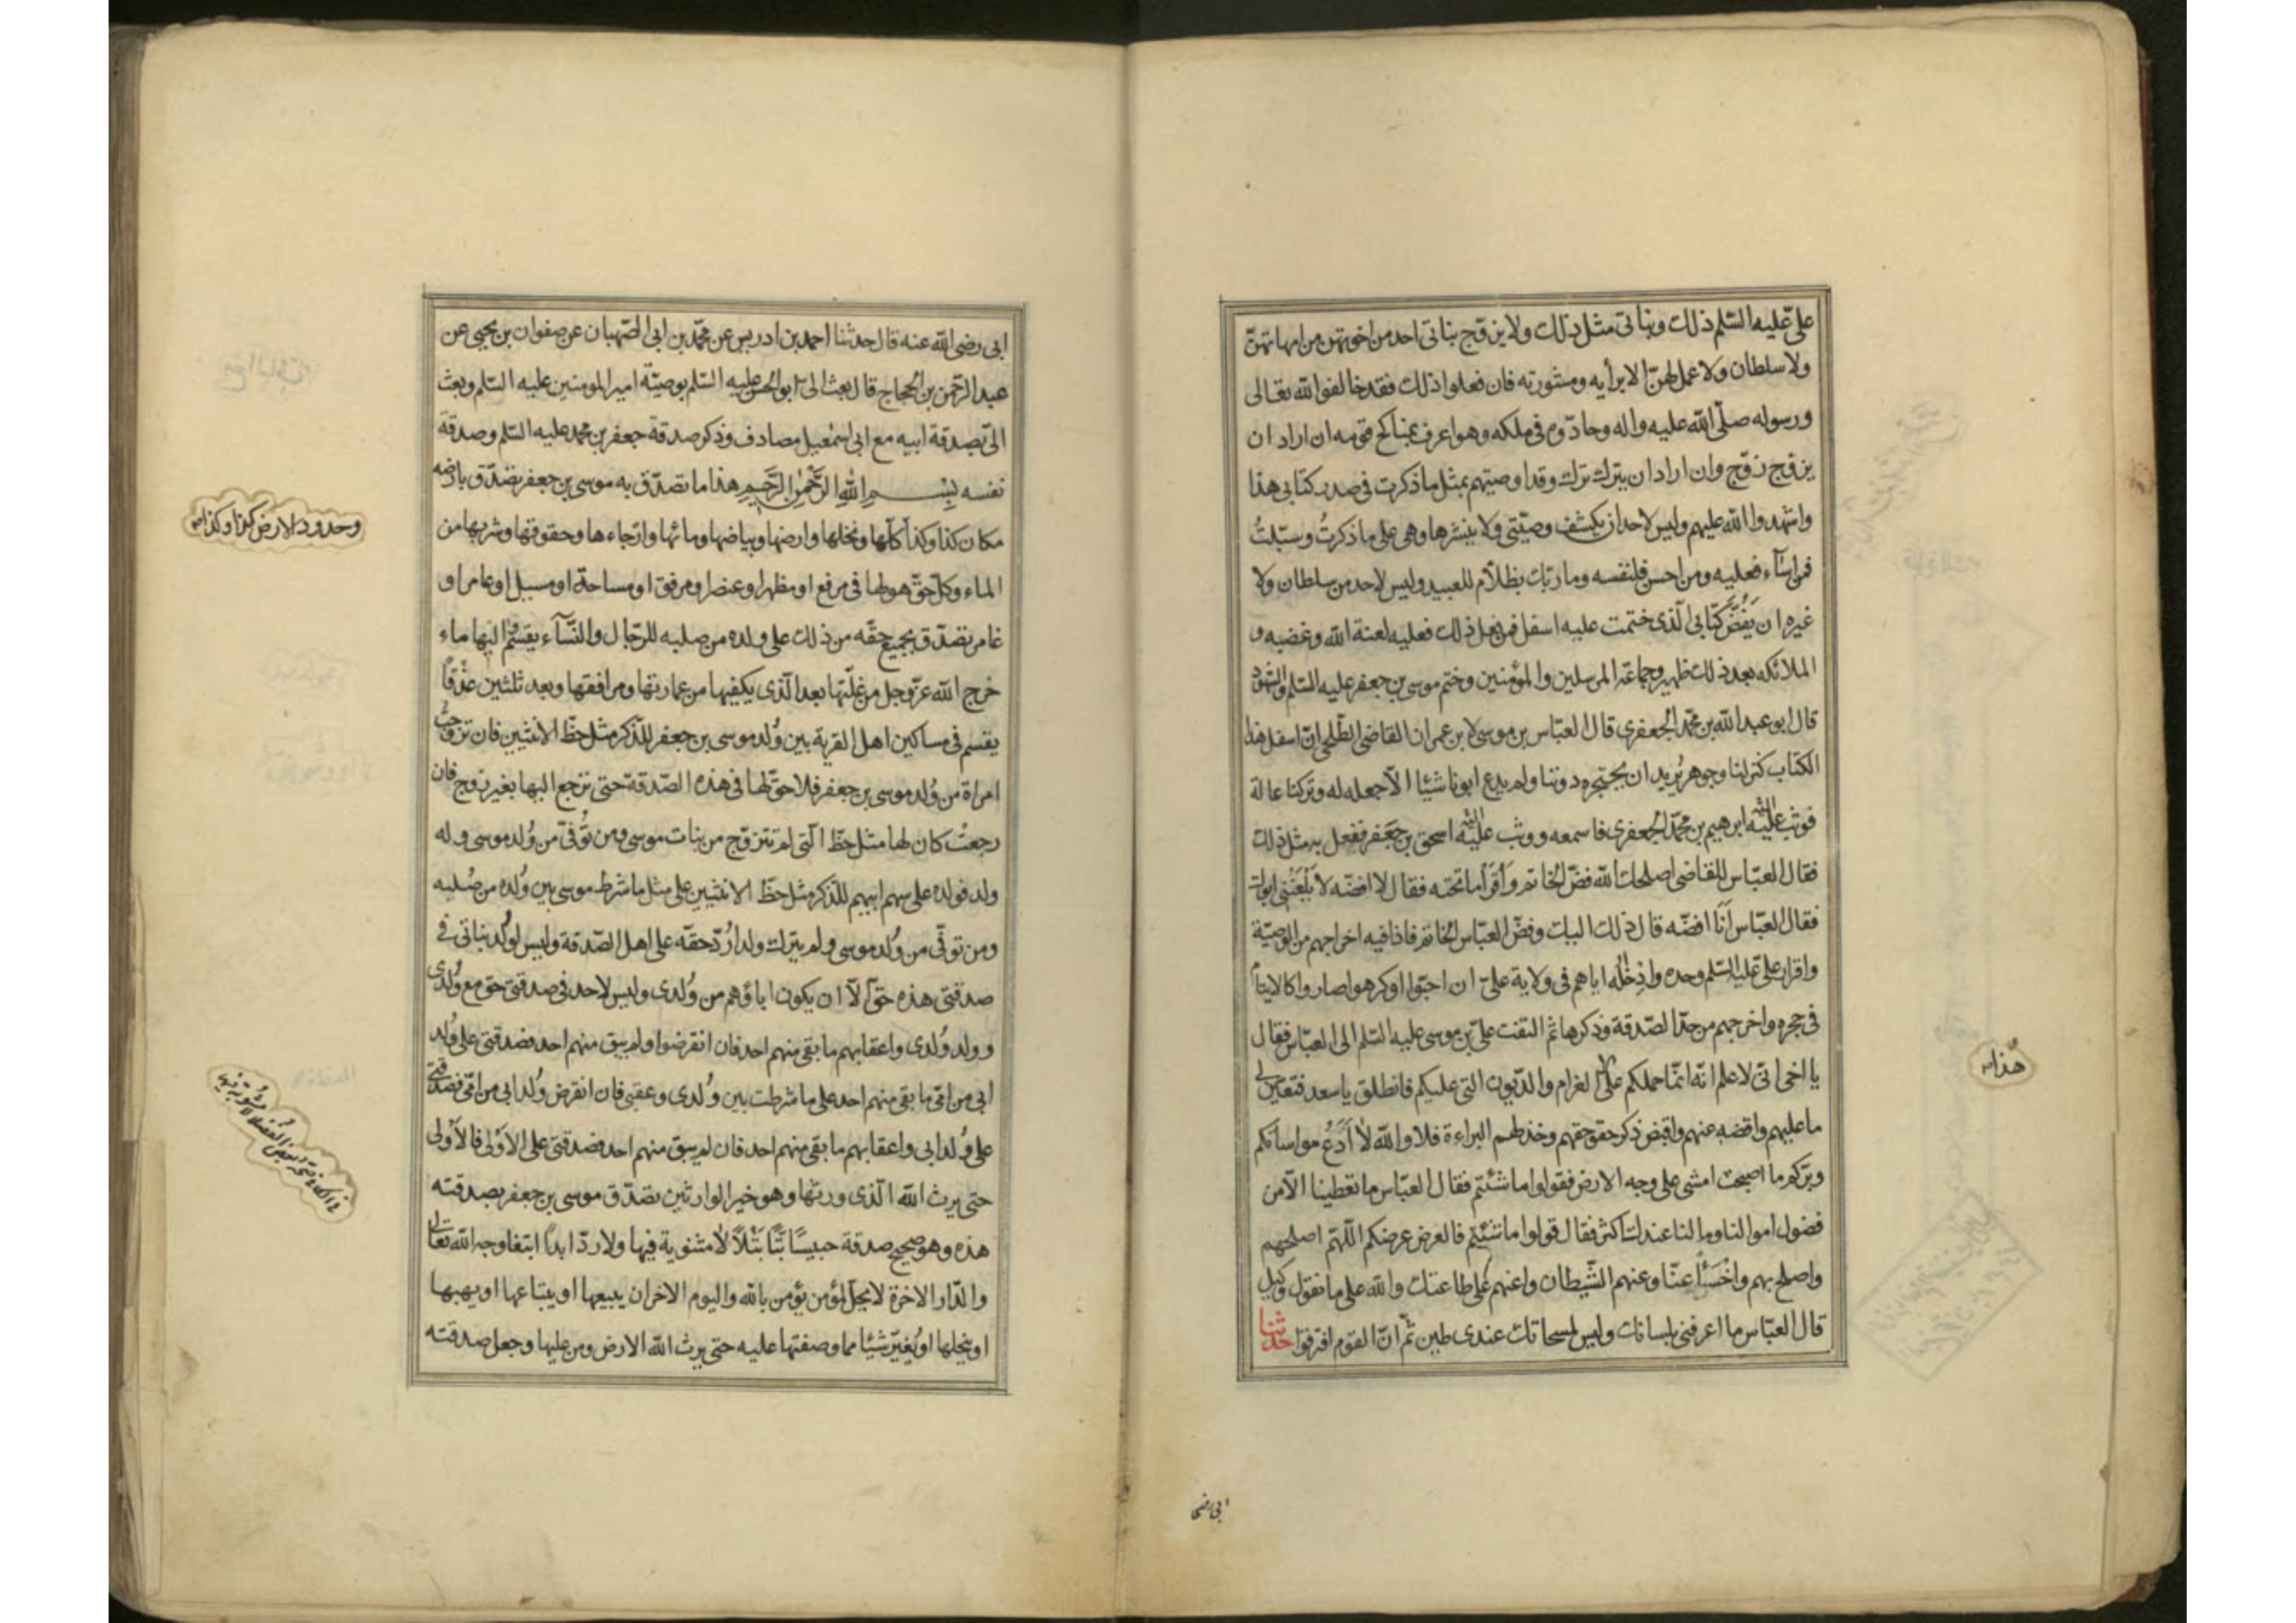 علىّ عليه السّلم ذلك وبناتى مثل ذلك ولا يزوّج بناتى احد من اخوتهن من امهاتهنّ
ولا سلطان ولا عمل لهنّ الا برأيه ومشورته فان فعلوا ذلك فقد خالفوا الله تعالى
ورسوله صلّى الله عليه واله وحادّوه فى ملكه وهو اعرف بمناكح قومه ان اراد ان
يزوّج زوّج وان اراد ان يترك ترك وقد اوصيتهم بمثل ما ذكرت فى صدر كتابى هذا
واشهدوا الله عليهم وليس لاحد ان يكشف وصيّتى ولا ينشرها وهى على ما ذكرتُ وسبّلتُ
فمن اسآء فعليه ومن احسن فلنفسه وما ربّك بظلّام للعبيد وليس لاحد من سلطان ولا
غيره ان يَفُضَّ كتابى الّذى ختمت عليه اسفل فمن فعل ذلك فعليه لعنة الله وغضبه و
الملائكه بعد ذلك ظهير وجماعة المرسلين والمؤمنين وختم موسى بن جعفر عليه السّلم والشهود
قال ابو عبد الله بن محمّد الجعفرى قال العبّاس بن موسى لابن عمران القاضى الطّلحى انّ اسفل هذا
الكتاب كنز لنا وجوهر يُريد ان يحتجره دوننا ولم يدع ابونا شيئًا الّا جعله له وتركنا عالة
فوثب عليه ابرهيم بن محمّد الجعفرى فاسمعه ووثب عليه اسحق بن جعفر ففعل به مثل ذلك
فقال العبّاس للقاضى اصلحك الله فضّ الخاتم وَاقرَأ ما تحته فقال لا افضّه لا يَلْعَنُنى ابوك
فقال العبّاس اَنَا افضّه قال ذلك اليك وفضّ العبّاس الخاتم فاذا فيه اخراجهم من الوصيّة
واقرار علىّ عليه السّلم وحده وادخاله اياهم فى ولاية علىّ ان احبّوا اوكرهوا صاروا كالايتام
فى حجره واخرجهم من حدّ الصّدقة وذكرها ثمّ التفت علىّ بن موسى عليه السّلم الى العبّاس فقال
يا اخى انّى لاعلم انّه انّما حملكم على الغرام والدّيون التى عليكم فانطلق يا سعد فتعيّن لى
ما عليهم واقضه عنهم واقبض ذكر حقوقهم وخذ لهم البراءة فلا والله لا اَدَعُ مواساتكم
وبرّكم ما اصبحت امشى على وجه الارض فقولوا ما شئتم فقال العبّاس ما تعطينا الّا من
فضول اموالنا وما لنا عندك اكثر فقال قولوا ما شئتم فالعرض عرضكم اللّهمّ اصلحهم
واصلح بهم واخْسَأ عنّا وعنهم الشّيطان واعنهم على طاعتك والله على ما نقول وكيل
قال العبّاس ما اعرفنى بلسانك وليس لمسحاتك عندى طين ثمّ انّ القوم افترقوا حدثنا
هذا
ابى رضى
ابى رضى الله عنه قال حدثنا احمد بن ادريس عن محمّد بن ابى الصّهبان عن صفوان بن يحيى عن
عبد الرّحمن بن الحجاج قال بعث الىّ ابو الحسن عليه السّلم بوصيّة امير المؤمنين عليه السّلم وبعث
الىّ بصدقة ابيه مع ابى اسمعيل مصادف وذكر صدقة جعفر بن محمد عليه السّلم وصدقة
نفسه بِسْمِ اللهِ الرَّحْمنِ الرَّحِيمِ هذا ما تصدّق به موسى بن جعفر تصدّق بارضه
مكان كذا وكذا كلّها ونخلها وارضها وبياضها ومائها وارجاءها وحقوقها وشربها من
الماء وكلّ حقّ هو لها فى مرفع او مظهر او عنصر او مرفق او مساحة او مسيل او عامر او
غامر تصدّق بجميع حقّه من ذلك على ولده من صلبه للرّجال والنّسآء يقسم واليها ماء
خرج الله عزّ وجل من غلّتها بعد الّذى يكفيها من عمارتها ومرافقها وبعد ثلثين عذقًا
يقسم فى مساكين اهل القرية بين وُلد موسى بن جعفر للذّكر مثل حظّ الانثيين فان تزوّجت
امراة من وُلد موسى بن جعفر فلا حقّ لها فى هذه الصّدقة حتى ترجع اليها بغير زوج فان
رجعتْ كان لها مثل حظّ الّتى لم تتزوّج من بنات موسى ومن تُوفّى من وُلد موسى وله
ولد فولده على سهم ابيهم للذكر مثل حظّ الانثيين على مثل ما شرط موسى بين وُلده من صُلبه
ومن توفّى من وُلد موسى ولم يترك ولدا رُدّ حقّه على اهل الصّدقة وليس لوُلد بناتى فى
صدقتى هذه حقّ الّا ان يكون اباؤهم من وُلدى وليس لاحد فى صدقتى حق مع وُلدى
وولد وُلدى واعقابهم ما بقى منهم احد فان انقرضوا ولم يبق منهم احد فصدقتى على وُلد
ابى من امّى ما بقى منهم احد على ما شرطت بين وُلدى وعقبى فان انقرض وُلد ابى من امّى فصدقتى
على وُلد ابى واعقابهم ما بقى منهم احد فان لم يبق منهم احد فصدقتى على الاوْلى فالاَوْلى
حتى يرث الله الّذى ورثها وهو خير الوارثين تصدّق موسى بن جعفر بصدقته
هذه وهو صحيح صدقة حبيسًا بتًّا بتْلًا لا مثنوية فيها ولا ردّ ابدًا ابتغا وجه الله تعالى
والدّار الاخرة لا يحلّ لمؤمن يؤمن بالله واليوم الاخر ان يبيعها او يبتاعها او يهبها
او ينحلها او يُغيّر شيئا مما وصفتها عليه حتى يرث الله الارض ومن عليها وجعل صدقته
وحدود الارض كذا وكذا